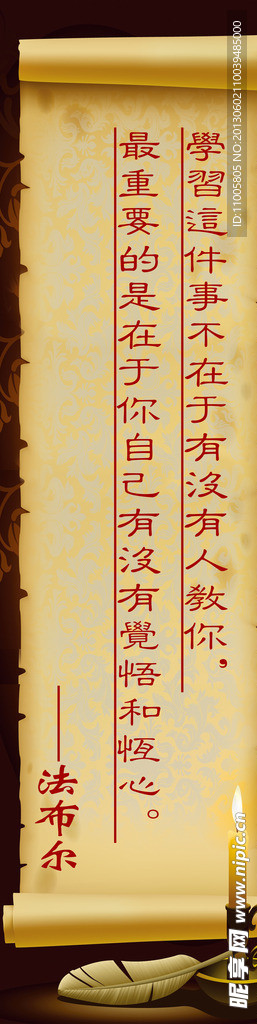 學習這件事不在于有沒有人教你，
最重要的是在于你自己有沒有覺悟和恆心。
——法布尔
ID:11005805 NO:20130602110039485000
昵享网 www.nipic.cn